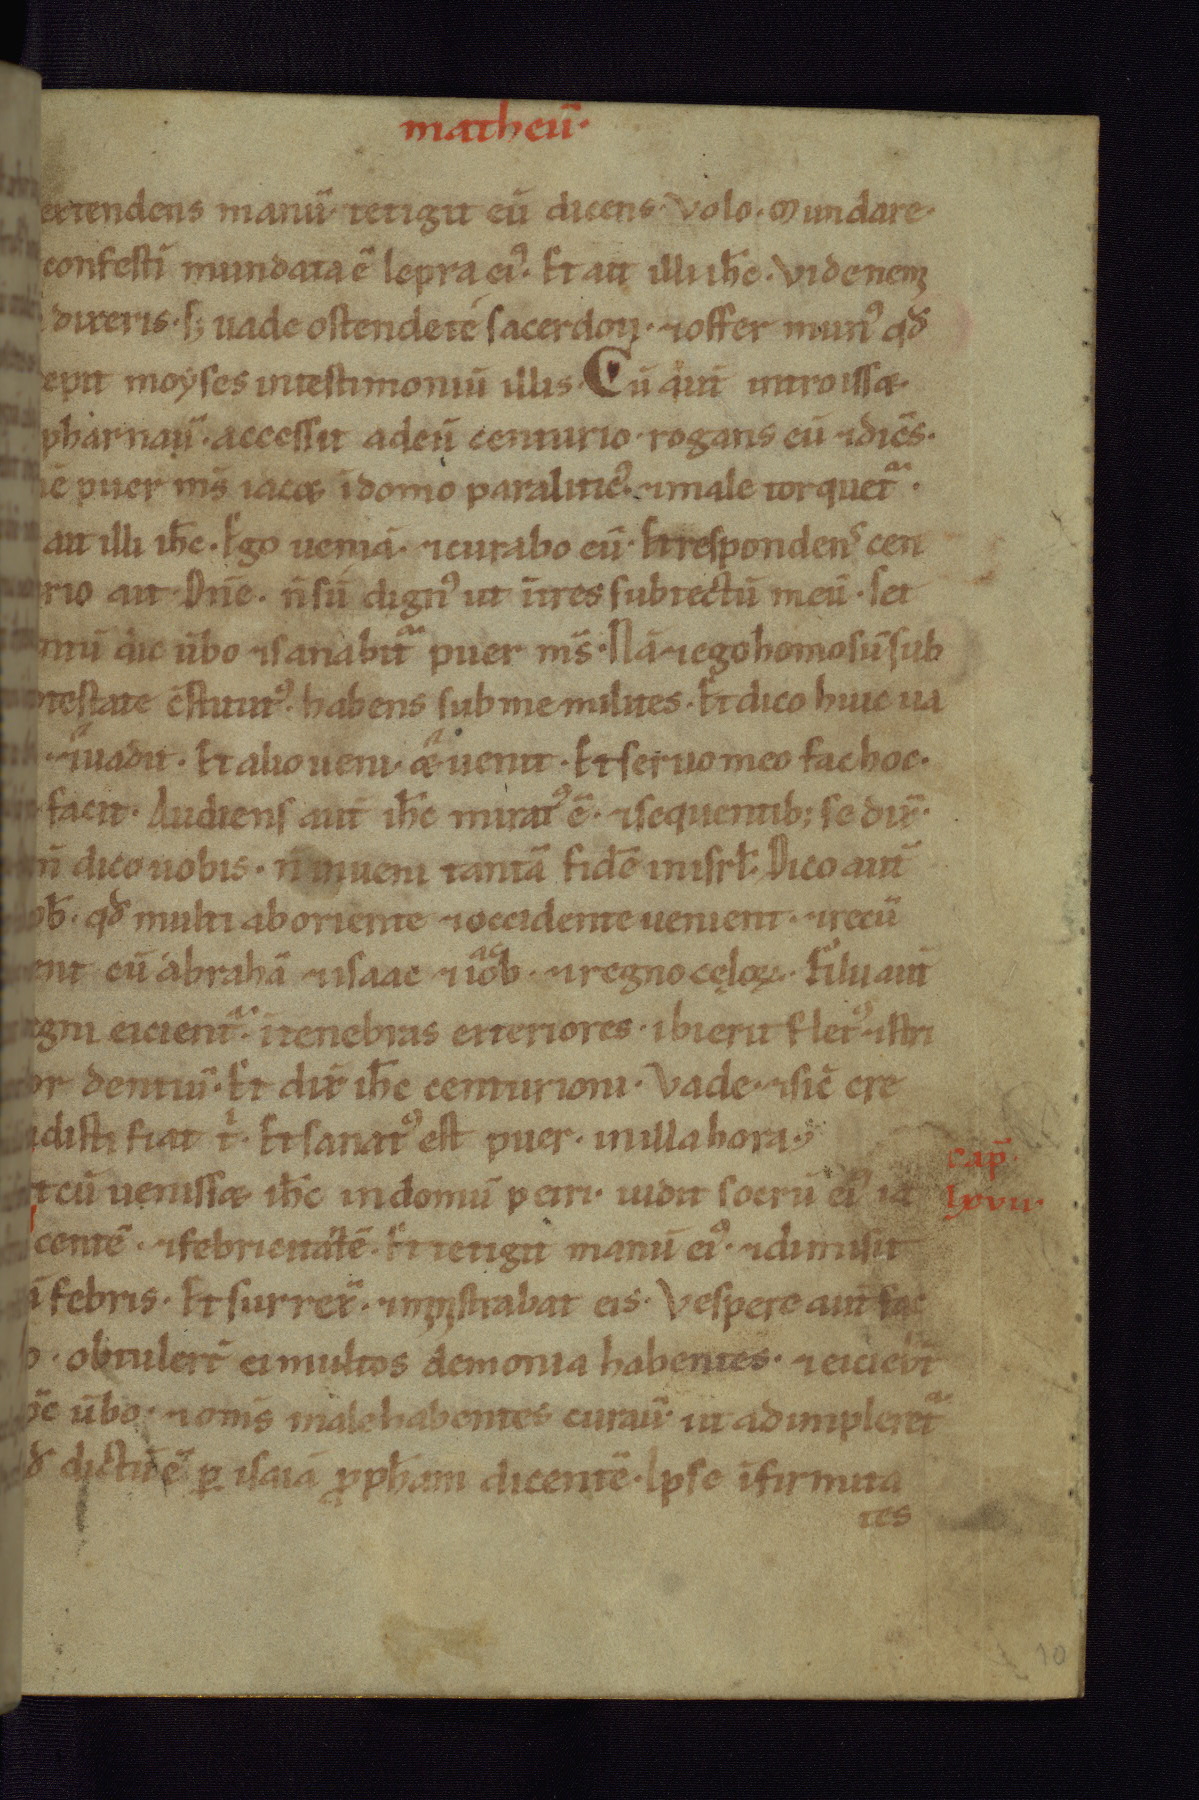 matheū·
extendens manū· tetigit eū dicens· Volo· mundare·
confestī mundata ē lepra ei⁹· Et ait illi ih̄c· Vide nem
dixeris· sꝫ uade ostende te sacerdoti· ⁊ offer mun⁹ qđ
epit moyses in testimoniū illis· Cū aūt introisset
pharnaū· accessit ad eū centurio· rogans eū ⁊ dicēs·
nē puer ms̄ iacet ī domo paralitic⁹· ⁊ male torquet̃·
ait illi ih̄c· Ego ueniā· ⁊ curabo eū· Et respondens cen
rio ait· Dn̄e· n̄ sū dign⁹ ut ītres sub tectū meū· set
ntū dic ūbo ⁊ sanabit̃ puer ms̄· Nā ⁊ ego homo sū sub
testate c̄stitut⁹· habens sub me milites· Et dico huic ua
· ⁊ uadit· Et alio ueni· et uenit· Et seruo meo fac hoc·
facit· Audiens aūt ih̄c mirat⁹ ē· ⁊ sequentib; se dix̄·
n̄ dico uobis· n̄ inueni tantā fidē in isrl̄· Dico aūt
ob̄· qđ multi ab oriente ⁊ occidente uenient· ⁊ recū
ent cū abrahā ⁊ isaac ⁊ iacob· ⁊ ī regno cęloꝝ· Filii aūt
egni eicient̃· ī tenebras exteriores· ibi erit flet⁹ ⁊ stri
or dentiū· Et dix̄ ih̄c centurioni· Vade· ⁊ sic̄ cre
disti fiat t̄· Et sanat⁹ est puer· in illa hora·
t cū uenisset ih̄c in domū petri· uidit socrū ei⁹ ia
cap̄·
lxvii·
centē· ⁊ febricitātē· Et tetigit manū ei⁹· ⁊ dimisit
ā febris· Et surrex̄· ⁊ ministrabat eis· Vespere aūt fac
o· obtuler̄t ei multos demonia habentes· ⁊ eicieb̄t
ūbo· ⁊ om̄s male habentes curauīt· ut adimpleret̃
đ dictū ē ꝑ isaiā ꝓph̄am dicentē· Ipse īfirmita
tes
10